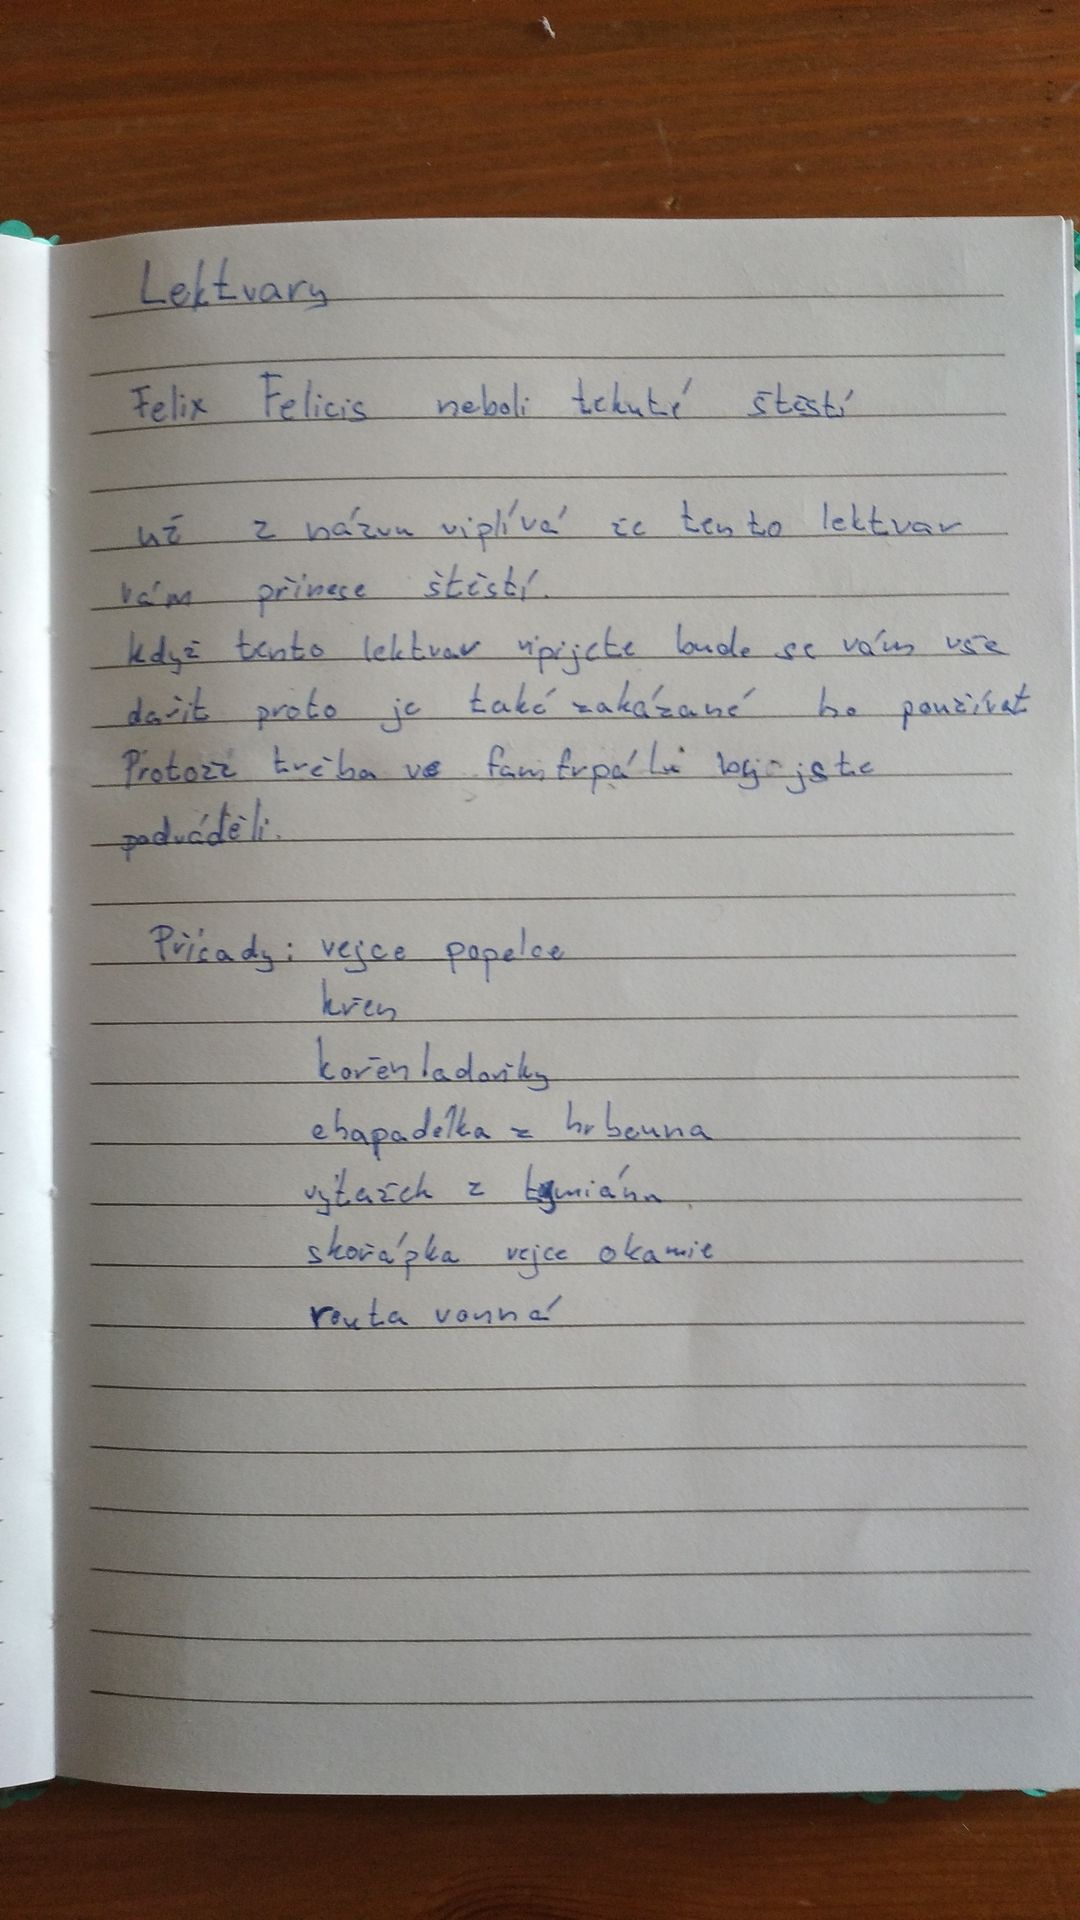 Lektvary
Felix Felicis neboli tekuté štěstí
už z názvu viplívá že tento lektvar
vám přinese štěstí.
když tento lektvar vipijete bude se vám vše
dařit proto je také zakázané ho používat
Protože třeba ve famfrpálu by jste
podváděli.
Přísady: vejce popelce
křen
kořen ladoňky
chapadélka z hrbouna
výtažek z tymiánu
skořápka vejce okamie
routa vonná